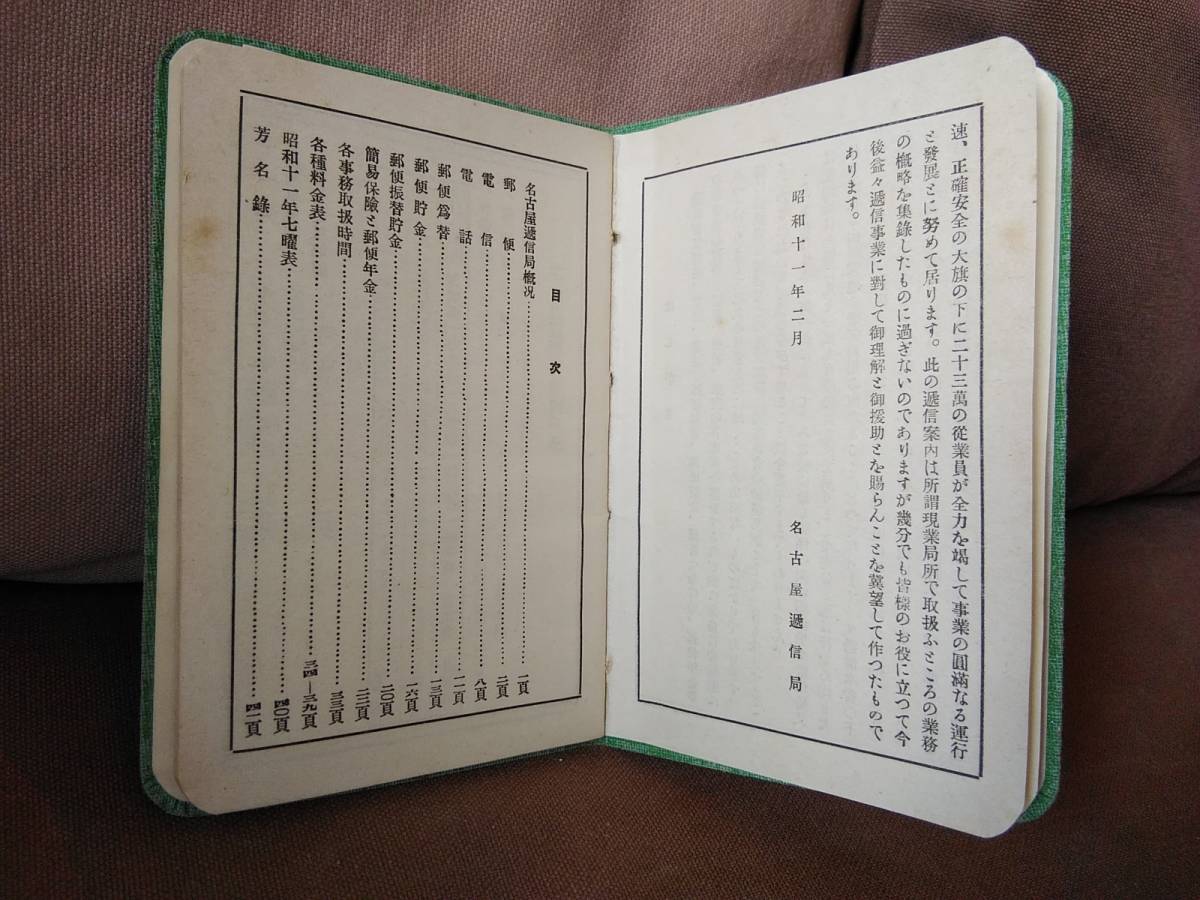 速、正確安全の大旗の下に二十三萬の從業員が全力を竭して事業の圓滿なる運行
と發展とに努めて居ります。此の遞信案內は所謂現業局所で取扱ふところの業務
の槪略を集錄したものに過ぎないのでありますが幾分でも皆樣のお役に立つて今
後益々遞信事業に對して御理解と御援助とを賜らんことを冀望して作つたもので
あります。
昭和十一年二月
名古屋遞信局
目次
名古屋遞信局槪况……一頁
郵便……二頁
電信……八頁
電話……一一頁
郵便爲替……一三頁
郵便貯金……一六頁
郵便振替貯金……二〇頁
簡易保險と郵便年金……二三頁
各事務取扱時間……三三頁
各種料金表……三四―三九頁
昭和十一年七曜表……四〇頁
芳名錄……四一頁